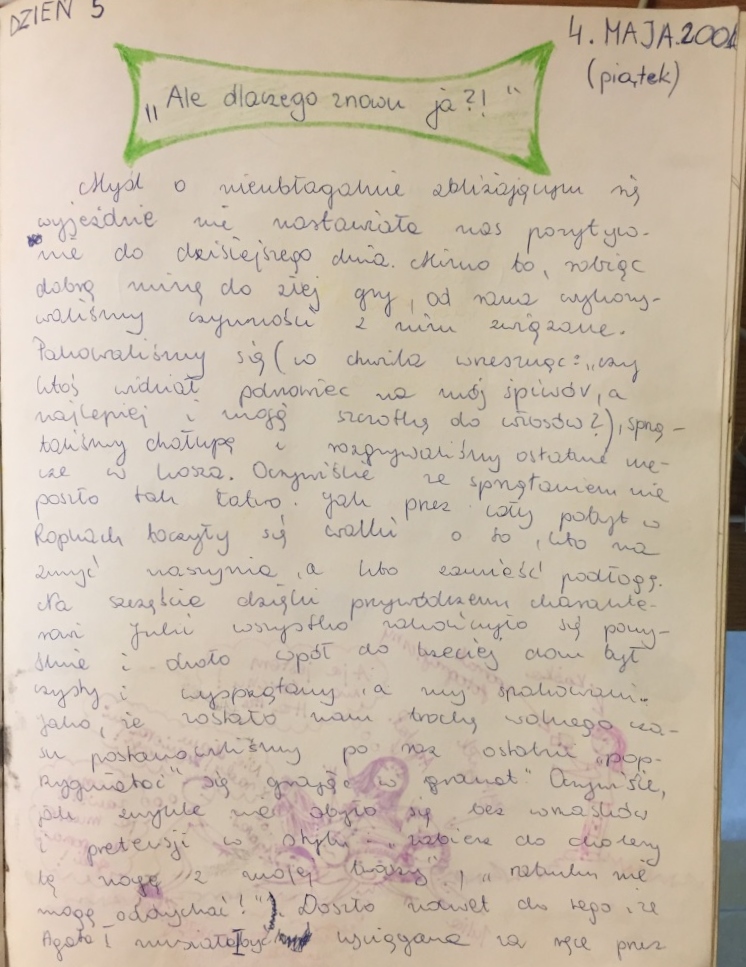 DZIEŃ 5
4. MAJA.2001
(piątek)
„Ale dlaczego znowu ja?!"
Myśl o nieubłagalnie zbliżającym się
wyjeździe nie nastawiała nas pozytyw-
nie do dzisiejszego dnia. Mimo to, robiąc
dobrą minę do złej gry, od rana wykony-
waliśmy czynności z nim związane.
Pakowaliśmy się (co chwila wrzeszcząc: „czy
ktoś widział pokrowiec na mój śpiwór, a
najlepiej i moją szczotkę do włosów?), sprzą-
taliśmy chałupę i rozgrywaliśmy ostatnie me-
cze w kosza. Oczywiście ze sprzątaniem nie
poszło tak łatwo. Jak przez cały pobyt w
Ropkach toczyły się walki o to, kto ma
zmyć naczynia, a kto zamieść podłogę.
Na szczęście dzięki przywódczemu charakte-
rowi Julii wszystko zakończyło się pomy-
ślnie i około wpół do trzeciej dom był
czysty i wysprzątany a my spakowani.
Jako, że zostało nam trochę wolnego cza-
su postanowiliśmy po raz ostatni
się grając w „granat". Oczywiście,
jak zwykle nie obyło się bez wrzasków
i pretensji w stylu: „zabierz do cholery
tę nogę z mojej twarzy", „ratunku nie
mogę oddychać!"). Doszło nawet do tego, że
Agata I musiała być wyciągana za ręce przez